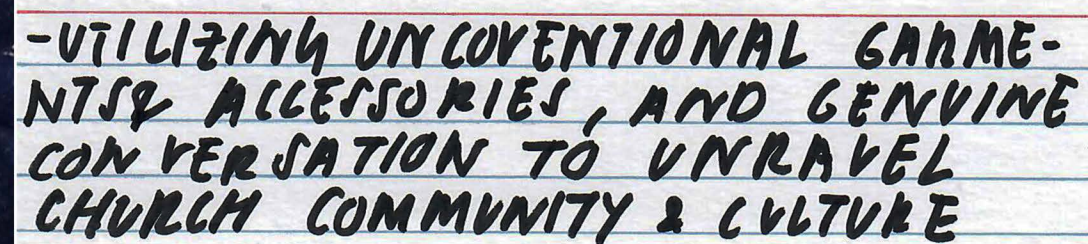 -UTILIZING UNCOVENTIONAL GARME-
NTS& ACCESSORIES, AND GENUINE
CONVERSATION TO UNRAVEL
CHURCH COMMUNITY & CULTURE